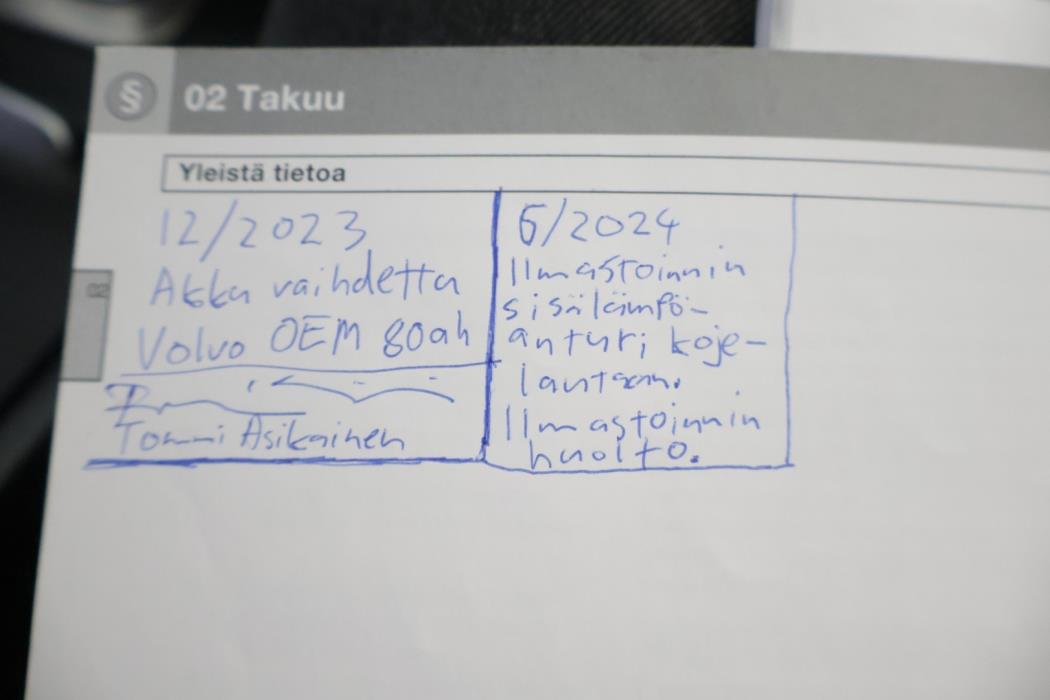 §
02 Takuu
Yleistä tietoa
02
12/2023
Akku vaihdettu
Volvo OEM 80ah
Tommi Asikainen
6/2024
Ilmastoinnin
sisälämpö-
anturi koje-
lautaan.
Ilmastoinnin
huolto.